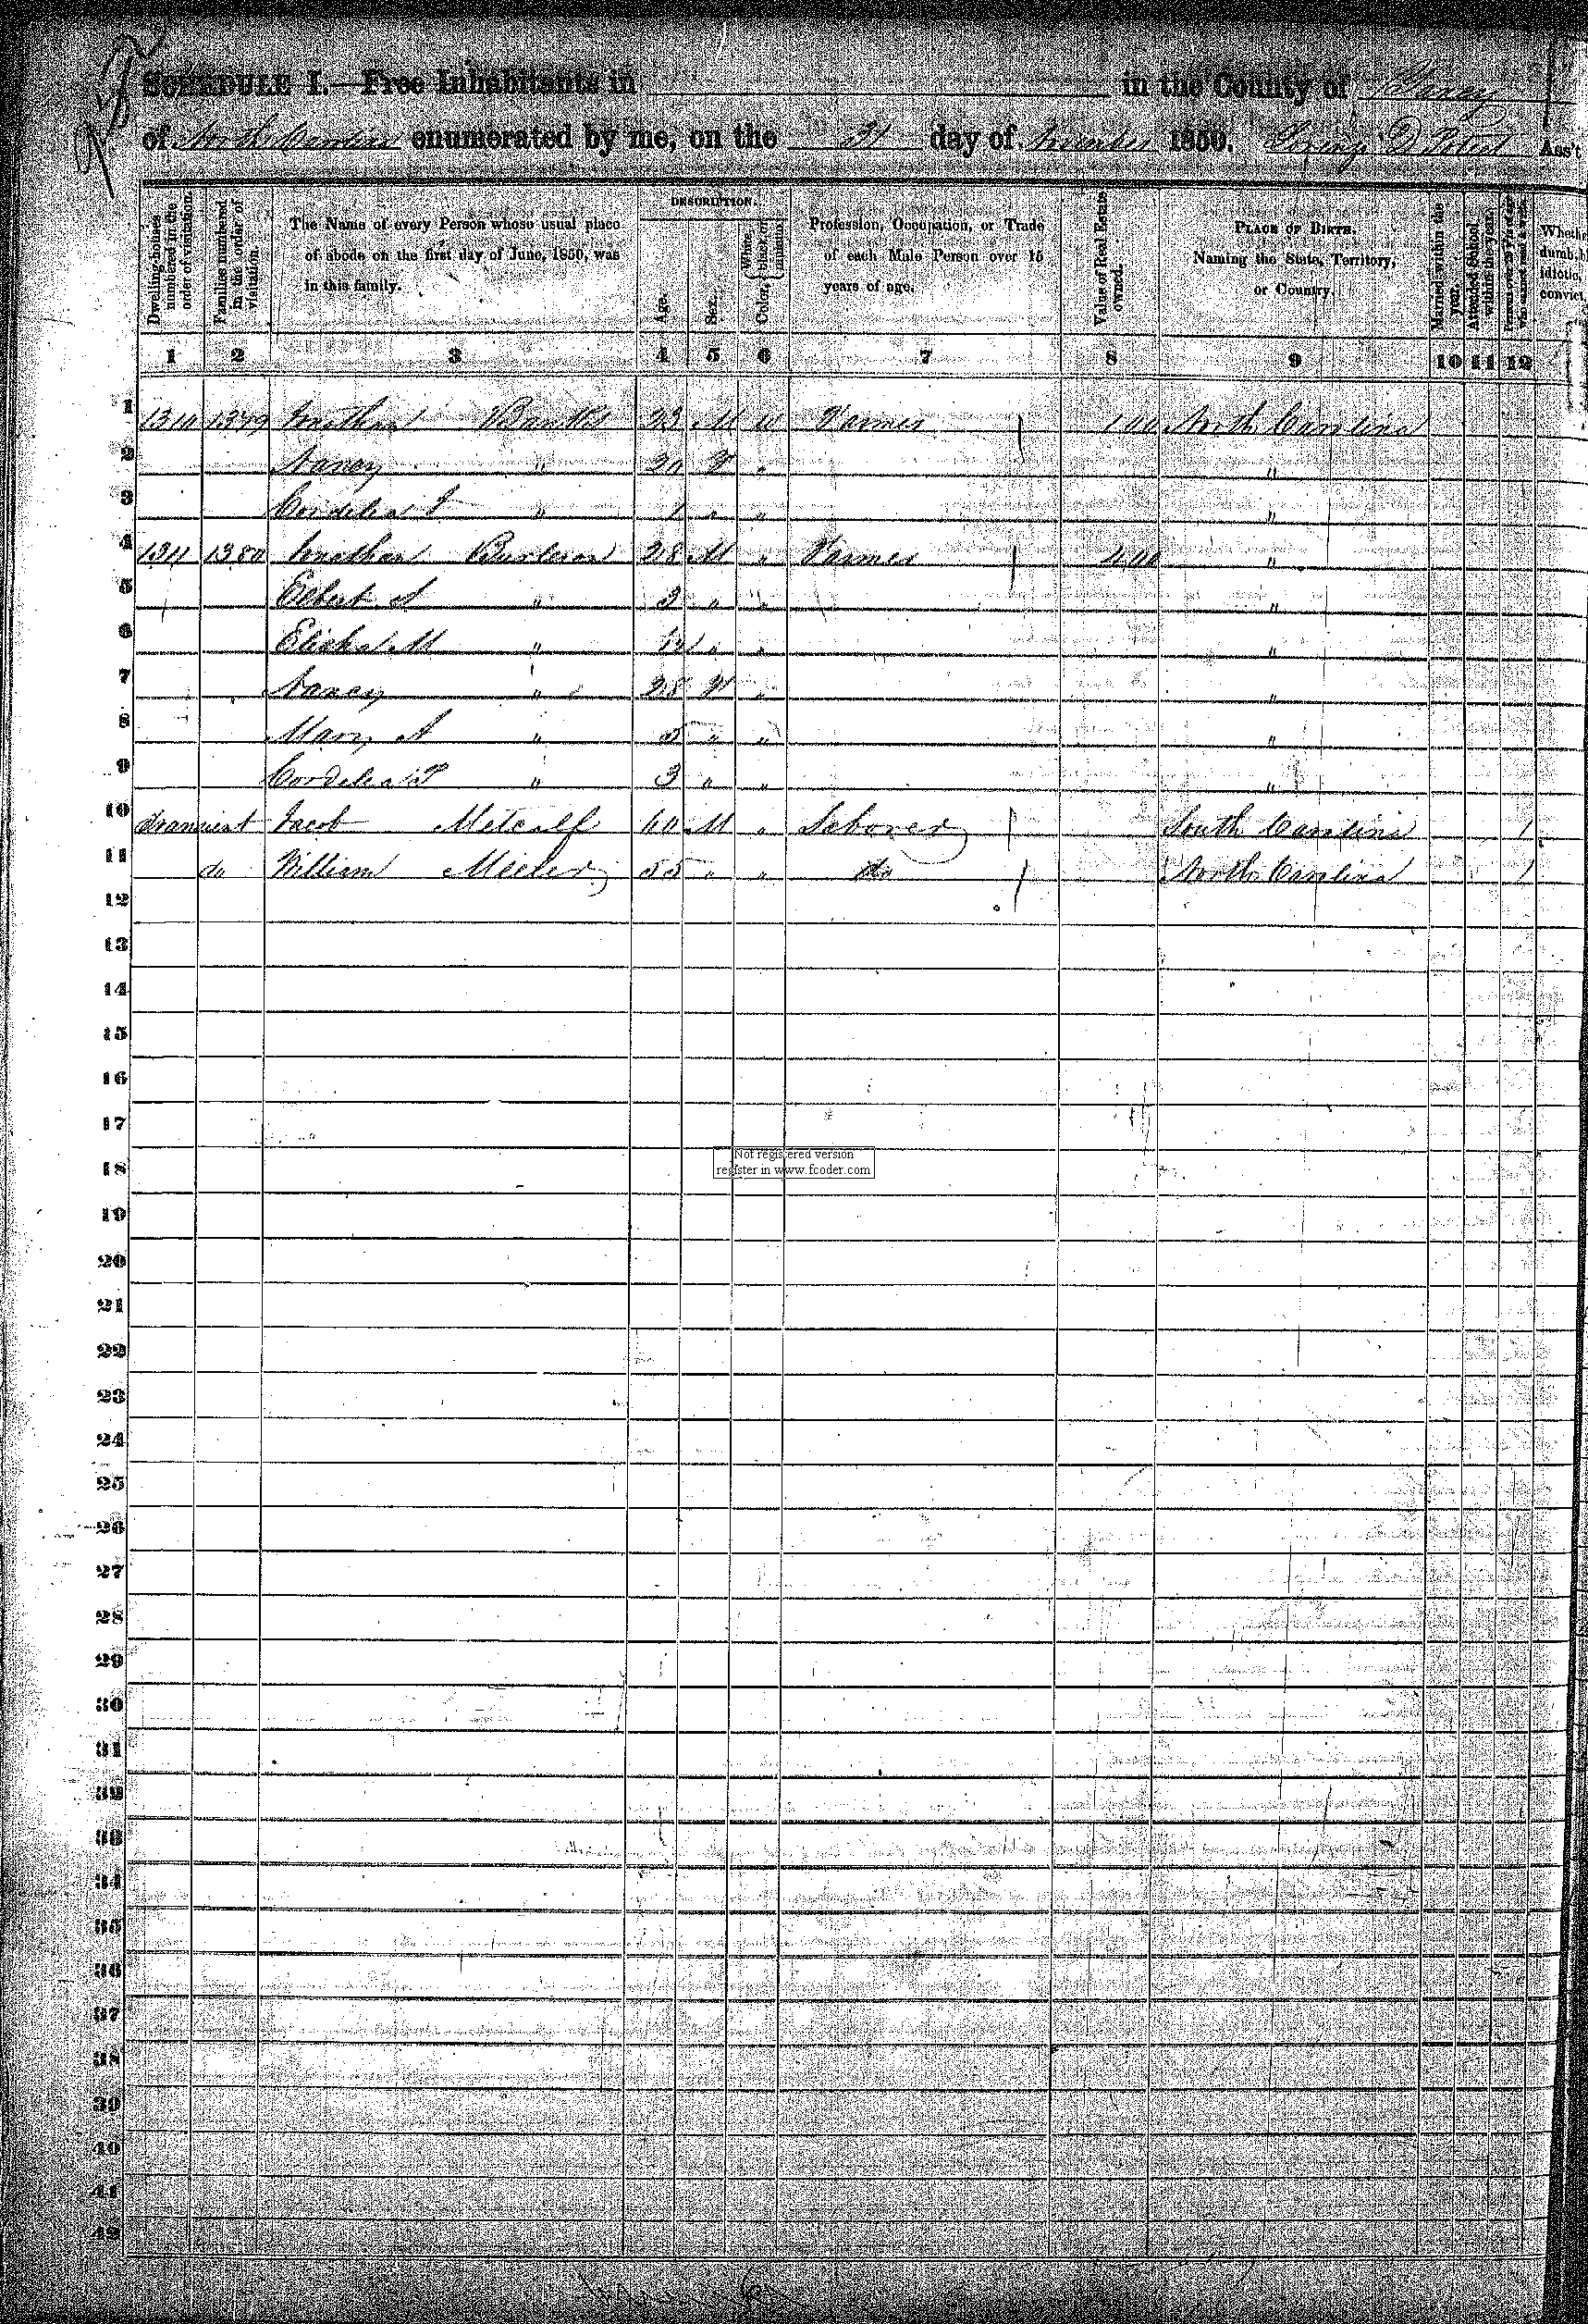 SCHEDULE I.—Free Inhabitants in in the County of Yancey
of North Carolina enumerated by me, on the 31 day of 1850. D Ass't
Dwelling-houses numbered in the order of visitation.
Families numbered in the order of visitation.
The Name of every Person whose usual place of abode on the first day of June, 1850, was in this family.
DESCRIPTION.
Age.
Sex.
Color, White, black, or mulatto.
Profession, Occupation, or Trade of each Male Person over 15 years of age.
Value of Real Estate owned.
PLACE OF BIRTH. Naming the State, Territory, or Country.
Married within the year.
Attended School within the year.
Persons over 20 y'rs of age who cannot read & write.
Whether dumb, idiotic, convict.
1 2 3 4 5 6 7 8 9 10 11 12
1 1379 Banks 23 M W Farmer 100 North Carolina
2 Nancy " 20 F " "
3 Cordelia " 1 " " "
4 1380 Jonathan Burleson 28 M " Farmer 400 "
5 Elbert S " 3 " " "
6 Elisha M " " " "
7 Nancy " 28 F " "
8 Mary A " 5 " " "
9 Cordelia " 3 " " "
10 Transient Jacob Metcalf 60 M " Laborer South Carolina 1
11 do William 55 " " do North Carolina 1
12
13
14
15
16
17
Not registered version
register in www.fcoder.com
18
19
20
21
22
23
24
25
26
27
28
29
30
31
32
33
34
35
36
37
38
39
40
41
42